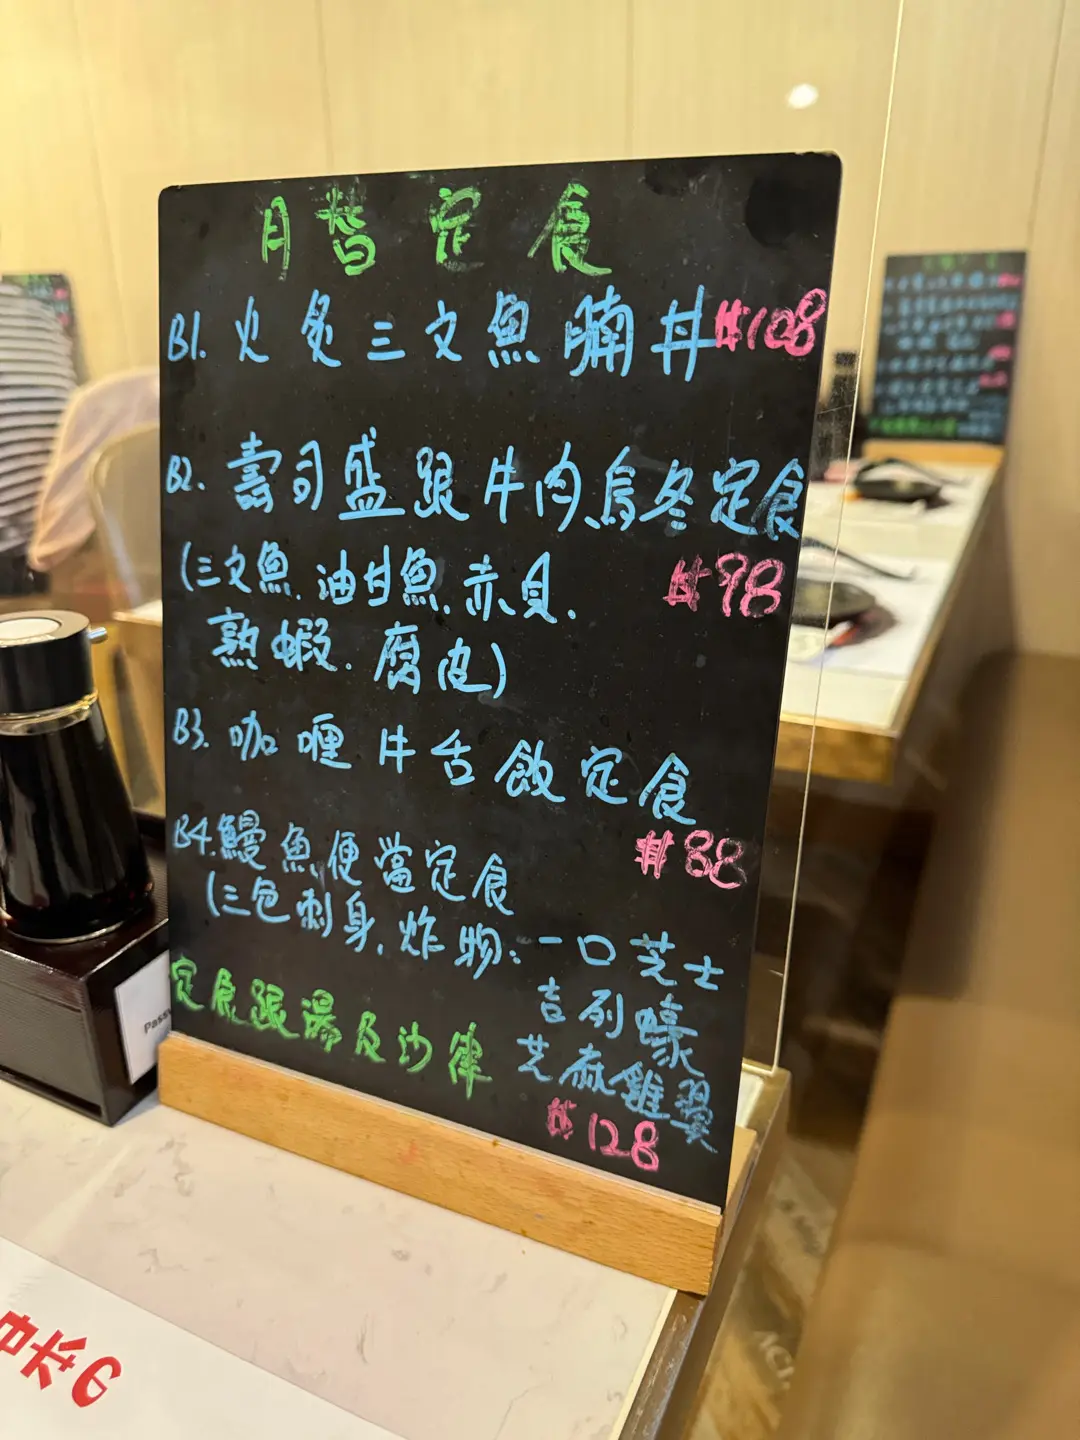 月替定食
B1. 火炙三文魚腩丼 $108
B2. 壽司盛跟牛肉烏冬定食
(三文魚.油甘魚.赤貝.
$98
熟蝦.腐皮)
B3. 咖喱牛舌飯定食
$88
B4. 鰻魚便當定食
(三色刺身.炸物:一口芝士
吉列蠔
芝麻雞翼
$128
定食跟湯及沙律
Passw